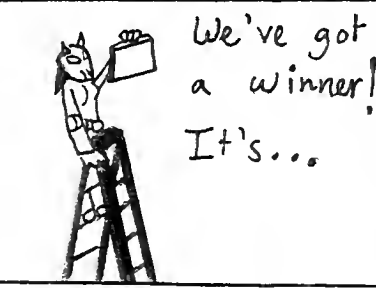 We've got
a winner!
It's...